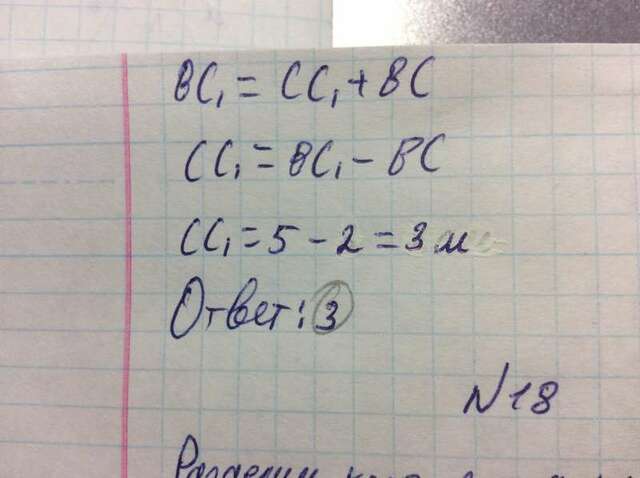 BC₁ = CC₁ + BC
CC₁ = BC₁ - BC
CC₁ = 5 - 2 = 3 м
Ответ: 3
N 18